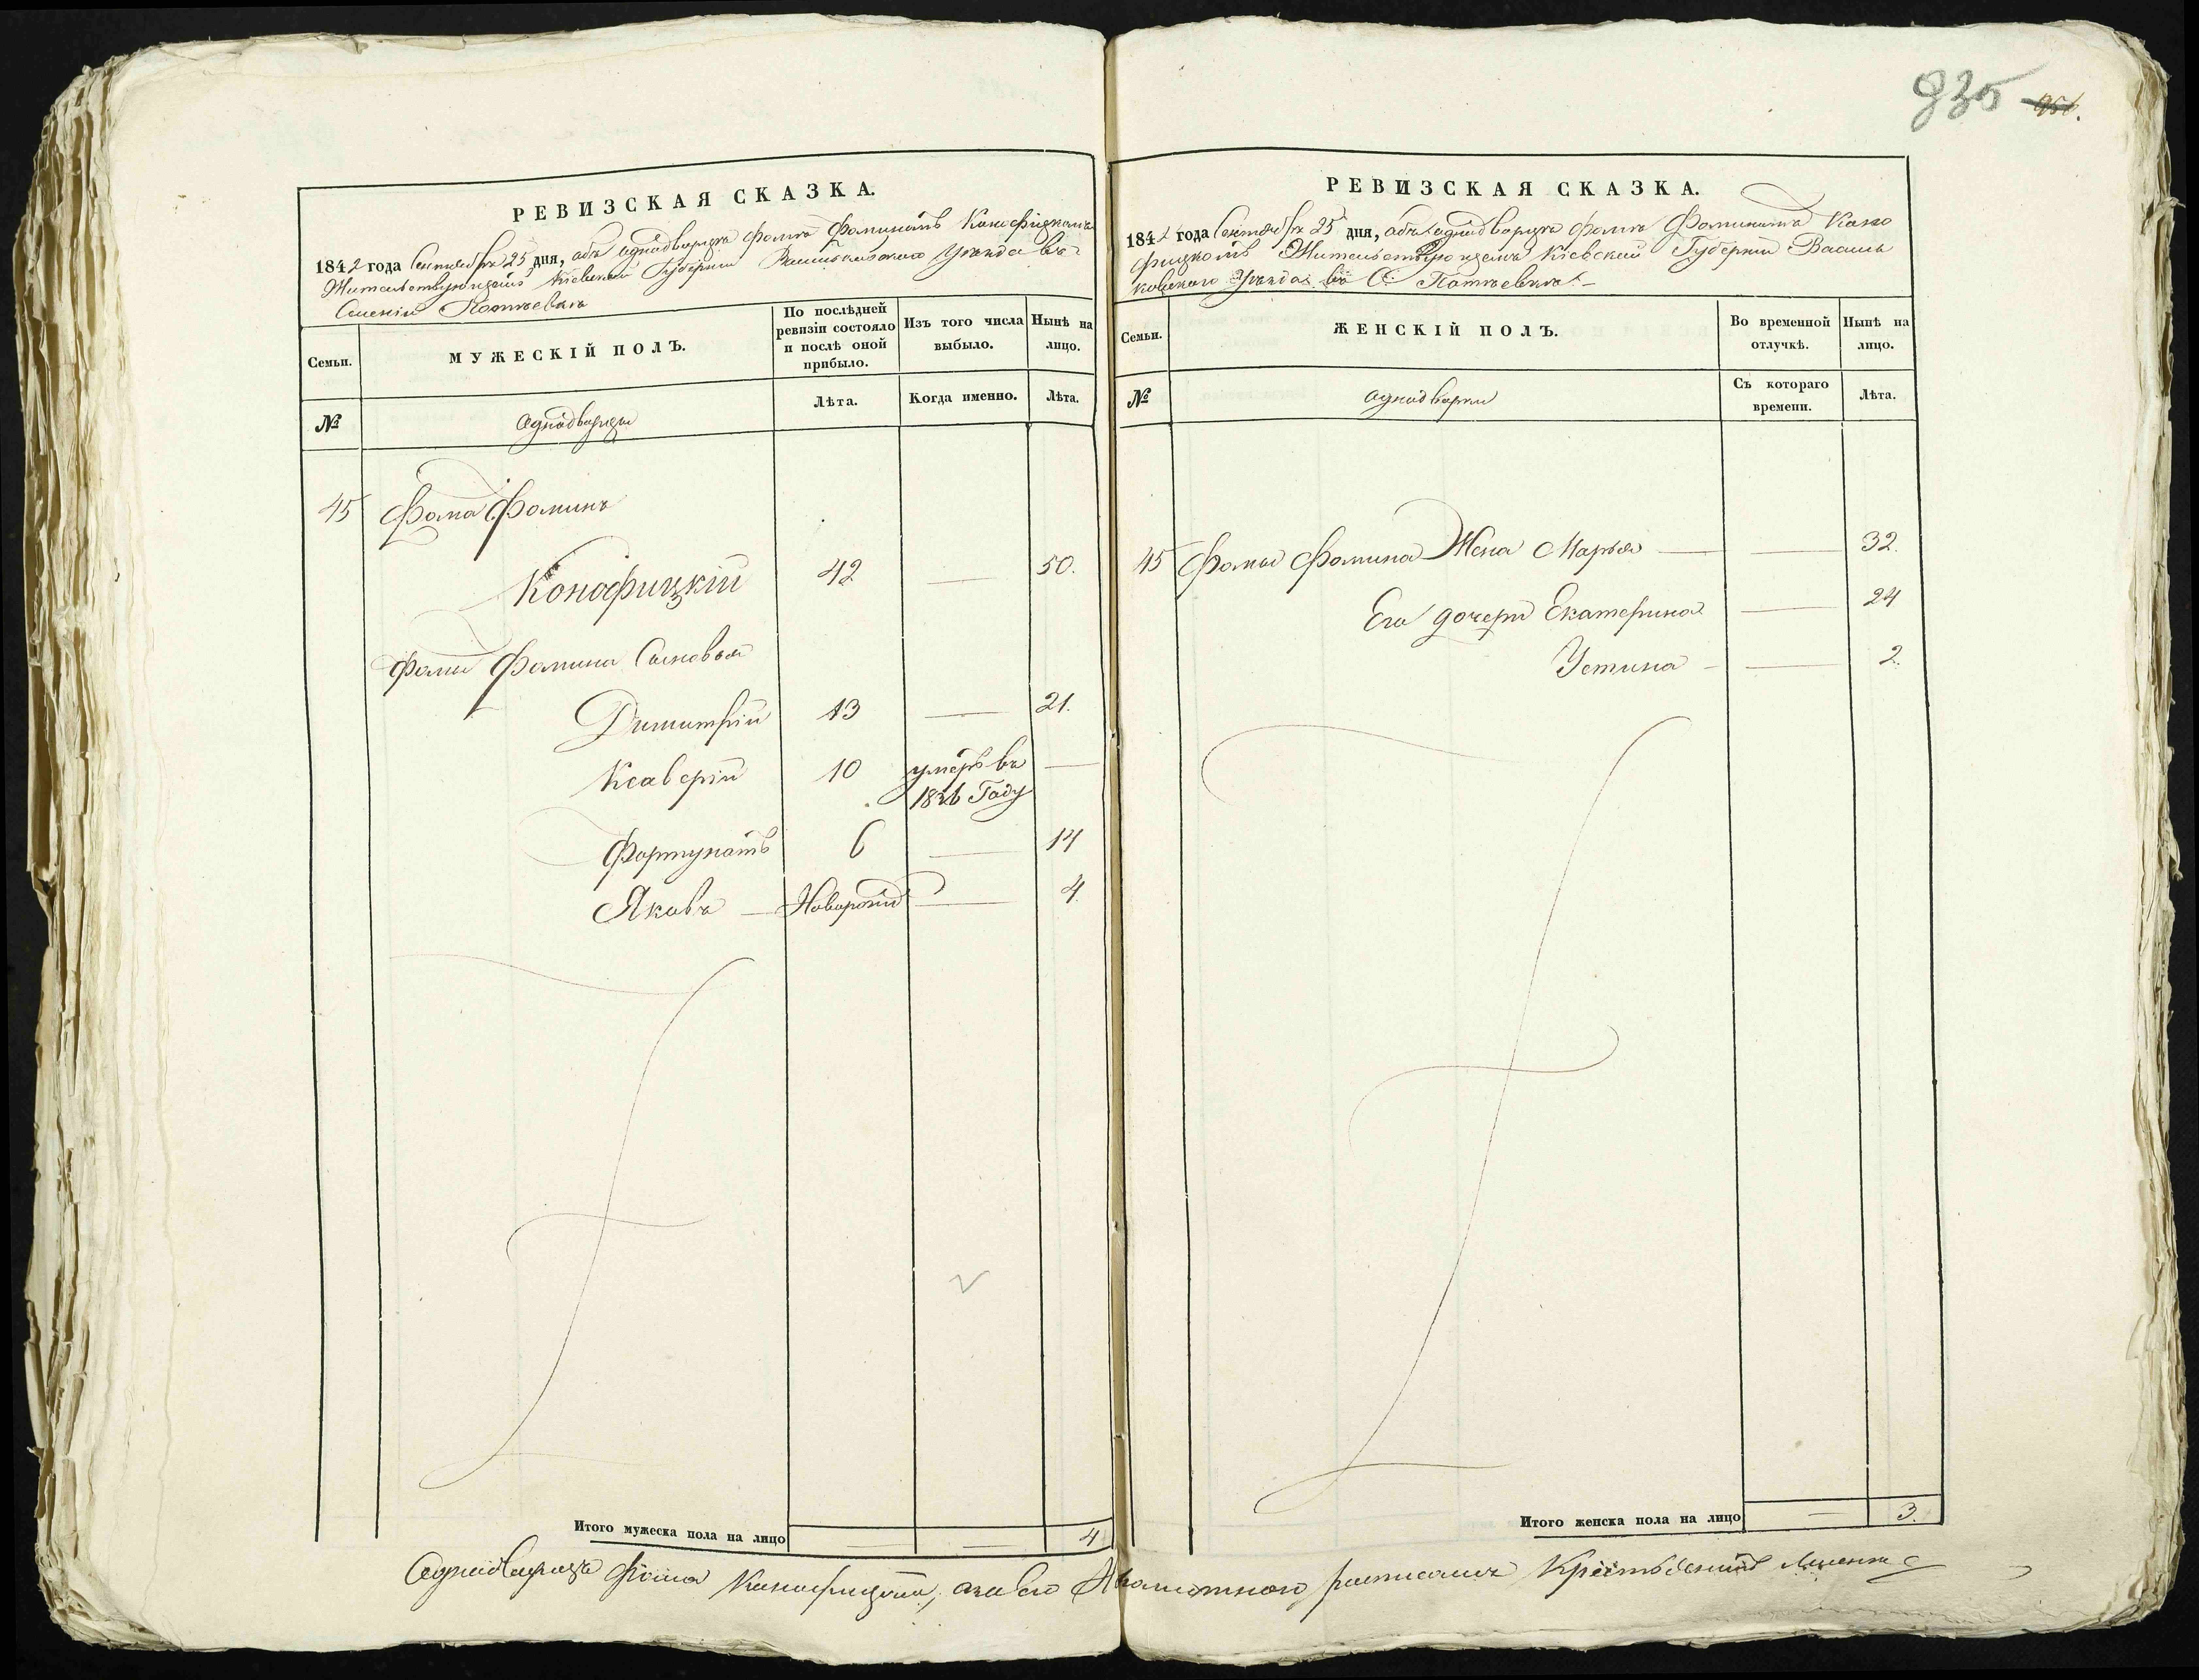 РЕВИЗСКАЯ СКАЗКА.
1842 года Сентября 25 дня, объ однодворцѣ Фомѣ Фоминомъ Конофицкомъ
Жительствующемъ Кіевской Губерніи Васильковскаго Уѣзда въ
Селеніи
Семьи.
МУЖЕСКІЙ ПОЛЪ.
По послѣдней ревизіи состояло и послѣ оной прибыло.
Изъ того числа выбыло.
Нынѣ на лицо.
№
однодворцы
Лѣта.
Когда именно.
Лѣта.
45 Фома Фоминъ
Конофицкій 42 — 50.
Фомы Фомина Сыновья
Димитрій 13 — 21.
Ксаверій 10 умеръ въ —
1836 Году
Фортунатъ 6 — 14
Яковъ — Новорож — 4
Итого мужеска пола на лицо — — 4
835 956.
РЕВИЗСКАЯ СКАЗКА.
1842 года Сентября 25 дня, объ однодворцѣ Фомѣ Фоминомъ Коно
фицкомъ Жительствующемъ Кіевской Губерніи Василь
ковскаго Уѣзда въ С.
Семьи.
ЖЕНСКІЙ ПОЛЪ.
Во временной отлучкѣ.
Нынѣ на лицо.
№
однодворки
Съ котораго времени.
Лѣта.
45 Фомы Фомина Жена Марья — — 32.
Его дочери Екатерина — 24
Устина — — 2.
Итого женска пола на лицо — 3.
Однодворецъ Фома Конофицкій, а за его